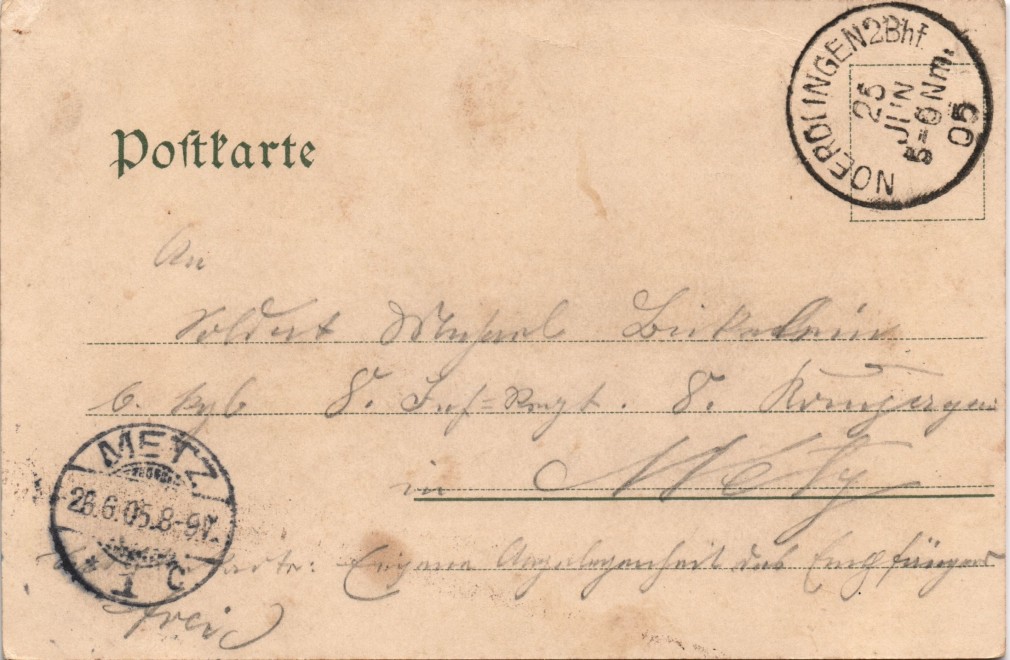 Postkarte
NOERDLINGEN 2 Bhf.
25
JUN
5-6 Nm.
05
An
Soldat Michael
b. kgl. 8. Inf=Regt. 8. Kompagnie
in Metz
METZ
26.6.05.8-9V.
* 1 C
Eigene Angelegenheit des Empfängers
frei